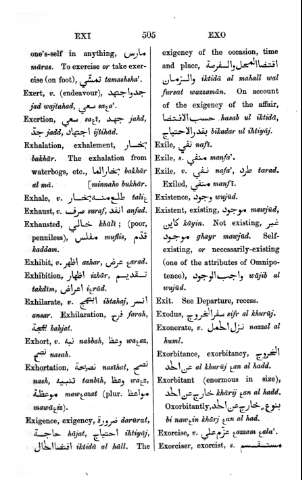 EXI 505 EXO
one's-self in anything, مارس
māras. To exercise or take exer-
cise (on foot), تمشّي tamashsha'.
Exert, v. (endeavour), جد واجتهد
jad wajtahad, سعي saعa'.
Exertion, سعي saعī, جهد jahd,
جدّ jadd, اجتهاد ijtihād.
Exhalation, exhalement, بخار
bukhār. The exhalation from
waterbogs, etc., بخار الما bukhār
al mā. [minnaho bukhār.
Exhale, v. طلع منه بخار taliع
Exhaust, v. صرف saraf, انفد anfad.
Exhausted, خالي khālī; (poor,
penniless), مفلس muflis,
kaddam.
Exhibit, v. اظهر azhar, عرض عarad.
Exhibition, اظهار izhār, تقديم
takdīm, عirād.
Exhilarate, v. ابتهج ibtahaj, انسر
ansar. Exhilaration, فرح farah,
بهجة bahjat.
Exhort, v. نبه nabbah, وعظ waعaz,
نصح nasah.
Exhortation, نصيحة nasīhat, نصح
nash, تنبيه tanbīh, وعظ waعz,
موعظة mawعazat (plur. مواعظ
mawāعiz).
Exigence, exigency, ضرورة darūrat,
حاجة hājat, احتياج ihtiyāj,
اقتضا الحال iktidā al hāl. The
exigency of the occasion, time
and place, اقتضا المحل والفرصة
والزمان iktidā al mahall wal
fursat wazzamān. On account
of the exigency of the affair,
حسب الاقتضا hasab ul iktidā,
بقدر الاحتياج bikadar ul ihtiyāj.
Exile, نفي nafī.
Exile, s. منفي manfa'.
Exile, v. نفي nafa', طرد tarad.
Exiled, منفي manfī.
Existence, وجود wujūd.
Existent, existing, موجود maujūd,
كاين kāyin. Not existing, غير
موجود ghayr maujūd. Self-
existing, or necessarily-existing
(one of the attributes of Omnipo-
tence), واجب الوجود wājib ul
wujūd.
Exit. See Departure, recess.
Exodus, سفر الخروج sifr al khurūj.
Exonerate, v. نزل الحمل nazzal al
huml.
Exorbitance, exorbitancy, الخروج
عن الحد al khurūj عan al hadd.
Exorbitant (enormous in size),
خارج عن الحد khārij عan al hadd.
Exorbitantly, بنوع خارج عن الحد
bi nawعin khārij عan al had.
Exorcise, v. عزم علي عazzam عala'.
Exorciser, exorcist, s.